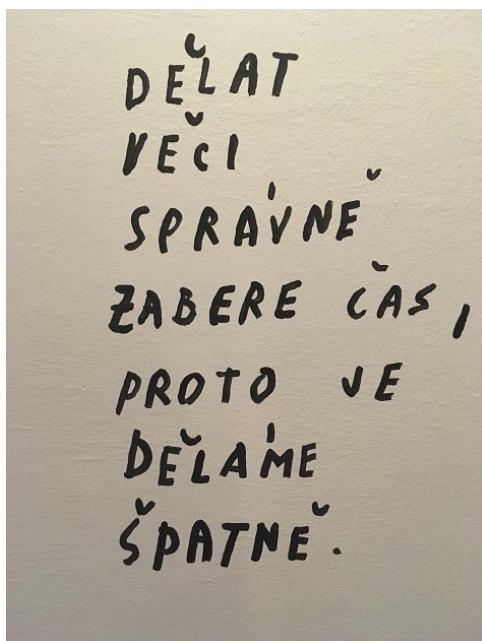 DĚLAT
VĚCI
SPRÁVNĚ
ZABERE ČAS,
PROTO JE
DĚLÁME
ŠPATNĚ.